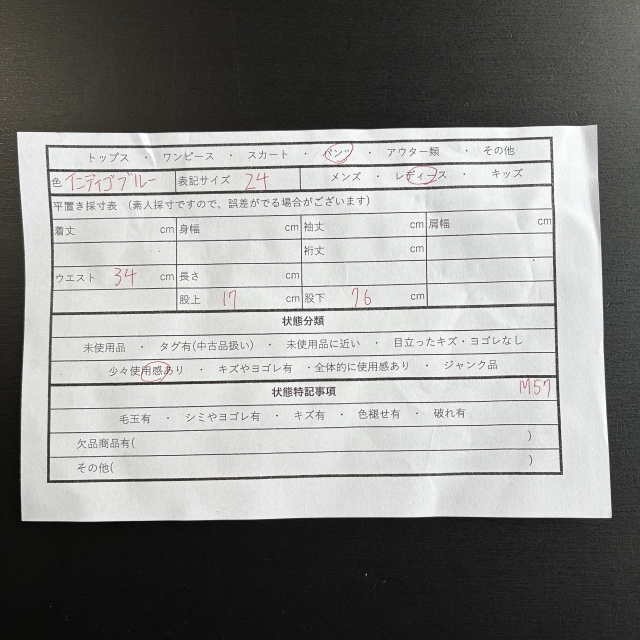 トップス ・ ワンピース ・ スカート ・ パンツ ・ アウター類 ・ その他
色 インディゴブルー 表記サイズ 24 メンズ ・ レディース ・ キッズ
平置き採寸表 (素人採寸ですので、誤差がでる場合がございます)
着丈 cm 身幅 cm 袖丈 cm 肩幅 cm
裄丈 cm
ウエスト 34 cm 長さ cm
股上 17 cm 股下 76 cm
状態分類
未使用品 ・ タグ有(中古品扱い) ・ 未使用品に近い ・ 目立ったキズ・ヨゴレなし
少々使用感あり ・ キズやヨゴレ有 ・全体的に使用感あり ・ ジャンク品
状態特記事項 M57
毛玉有 ・ シミやヨゴレ有 ・ キズ有 ・ 色褪せ有 ・ 破れ有
欠品商品有( )
その他( )